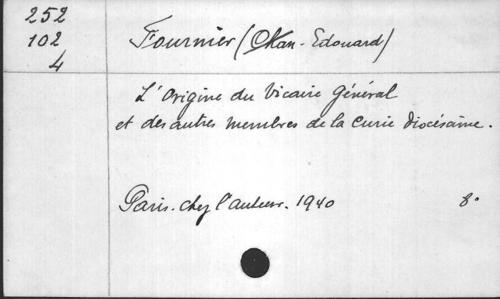 252
102
4
Fournier (Chan. Edouard)
L'Origine du Vicaire Général
et des autres membres de la Curie diocésaine.
Paris. chez l'auteur. 1940 8°